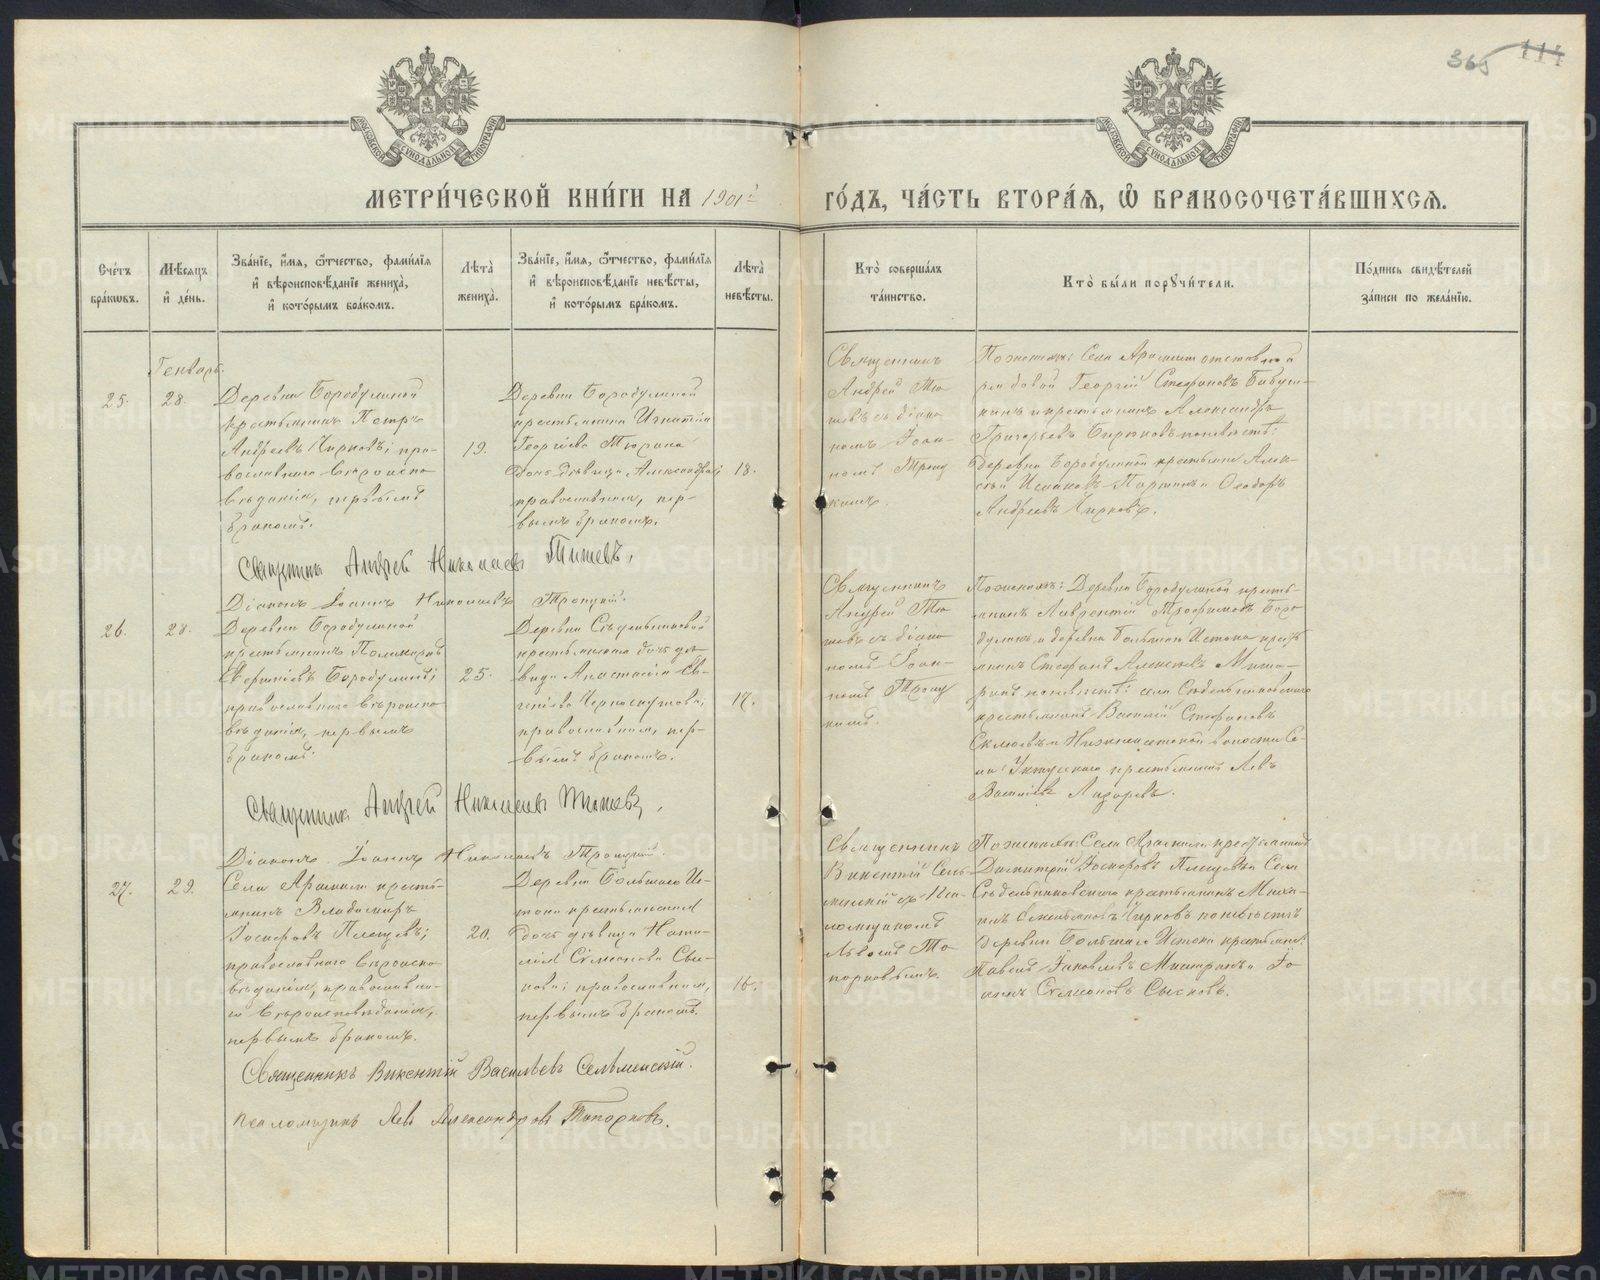 365 111
МОСКОВСКОЙ СѴНОДАЛЬНОЙ ТИПОГРАФІИ
МОСКОВСКОЙ СѴНОДАЛЬНОЙ ТИПОГРАФІИ
МЕТРИ́ЧЕСКОЙ КНИ́ГИ НА 1901й
ГО́ДЪ, ЧА́СТЬ ВТОРА́Я, Ѽ БРАКОСОЧЕТА́ВШИХСЯ.
Сче́тъ бра́кѡвъ.
Мѣ́сяцъ и҆ де́нь.
Зва́нїе, и҆́мя, ѻ҆́тчество, фами́лїя и҆ вѣроисповѣ́данїе жениха̀, и҆ кото́рымъ бра́комъ.
Лѣ́та̀ жениха̀.
Зва́нїе, и҆́мя, ѻ҆́тчество, фами́лїя и҆ вѣроисповѣ́данїе невѣ́сты, и҆ кото́рымъ бра́комъ.
Лѣ́та̀ невѣ́сты.
Кто̀ соверша́лъ та́инство.
Кто̀ бы́ли порꙋчи́тели.
По́дпись свидѣ́телей за́писи по жела́нїю.
Генварь.
25.
28.
Деревни Бородулиной
крестьянинъ Петръ
Андреевъ Чирковъ; пра-
вославнаго вѣроиспо-
вѣданія, первымъ
бракомъ.
19.
Деревни Бородулиной
крестьянина Игнатія
Георгіева
дочь дѣвица Александра;
православная, пер-
вымъ бракомъ.
18.
Священникъ
Андрей
съ діако-
номъ Іоан-
номъ Троиц-
кимъ.
По женихѣ: Села Арамили отставной
рядовой Георгій Стефановъ Бабуш-
кинъ и крестьянинъ Александръ
Григорьевъ по невѣстѣ:
Деревни Бородулиной крестьяне Алек-
сѣй Исаковъ и Ѳеодоръ
Андреевъ Чирковъ.
Священникъ Андрей Николаевъ
Діаконъ Іоаннъ Николаевъ Троицкій.
26.
28.
Деревни Бородулиной
крестьянинъ Поликарпъ
Бородулинъ;
православнаго вѣроиспо-
вѣданія, первымъ
бракомъ.
25.
Деревни
крестьянская дочь дѣ-
вица Анастасія Ев-
геніева Черноскутова;
православная, пер-
вымъ бракомъ.
17.
Священникъ
Андрей
съ діако-
номъ Іоан-
номъ Троиц-
кимъ.
По женихѣ: Деревни Бородулиной кресть-
янинъ Лаврентій Трофимовъ Боро-
дулинъ и деревни Большаго Истока крест-
янинъ Стефанъ Алексѣевъ
по невѣстѣ: села
крестьянинъ Василій Стефановъ
и Нижнеисетской волости Се-
ла Уктусскаго крестьянинъ Левъ
Васильевъ
Священникъ Андрей Николаевъ
Діаконъ Іоаннъ Николаевъ Троицкій.
27.
29.
Села Арамили кресть-
янинъ Владимиръ
Іосифовъ Плещевъ;
православнаго вѣроиспо-
вѣданія, православна-
го вѣроисповѣданія,
первымъ бракомъ.
20.
Деревни Большаго Ис-
тока крестьянская
дочь дѣвица Ната-
лія Симеонова Сыс-
кова; православная,
первымъ бракомъ.
16.
Священникъ
Викентій Сель-
менскій съ Пса-
ломщикомъ
Львомъ То-
порковымъ.
По женихѣ: Села Арамили крестьянинъ
Димитрій Іосифовъ Плещевъ и Села
крестьянинъ Миха-
илъ Чирковъ по невѣстѣ
деревни Большаго Истока крестьяне:
Павелъ Іаковлевъ и Іо-
аннъ Симеоновъ Сысковъ.
Священникъ Викентій Васильевъ Сельменскій.
Псаломщикъ Левъ Александровъ Топорковъ.
METRIKI.GASO-URAL.RU